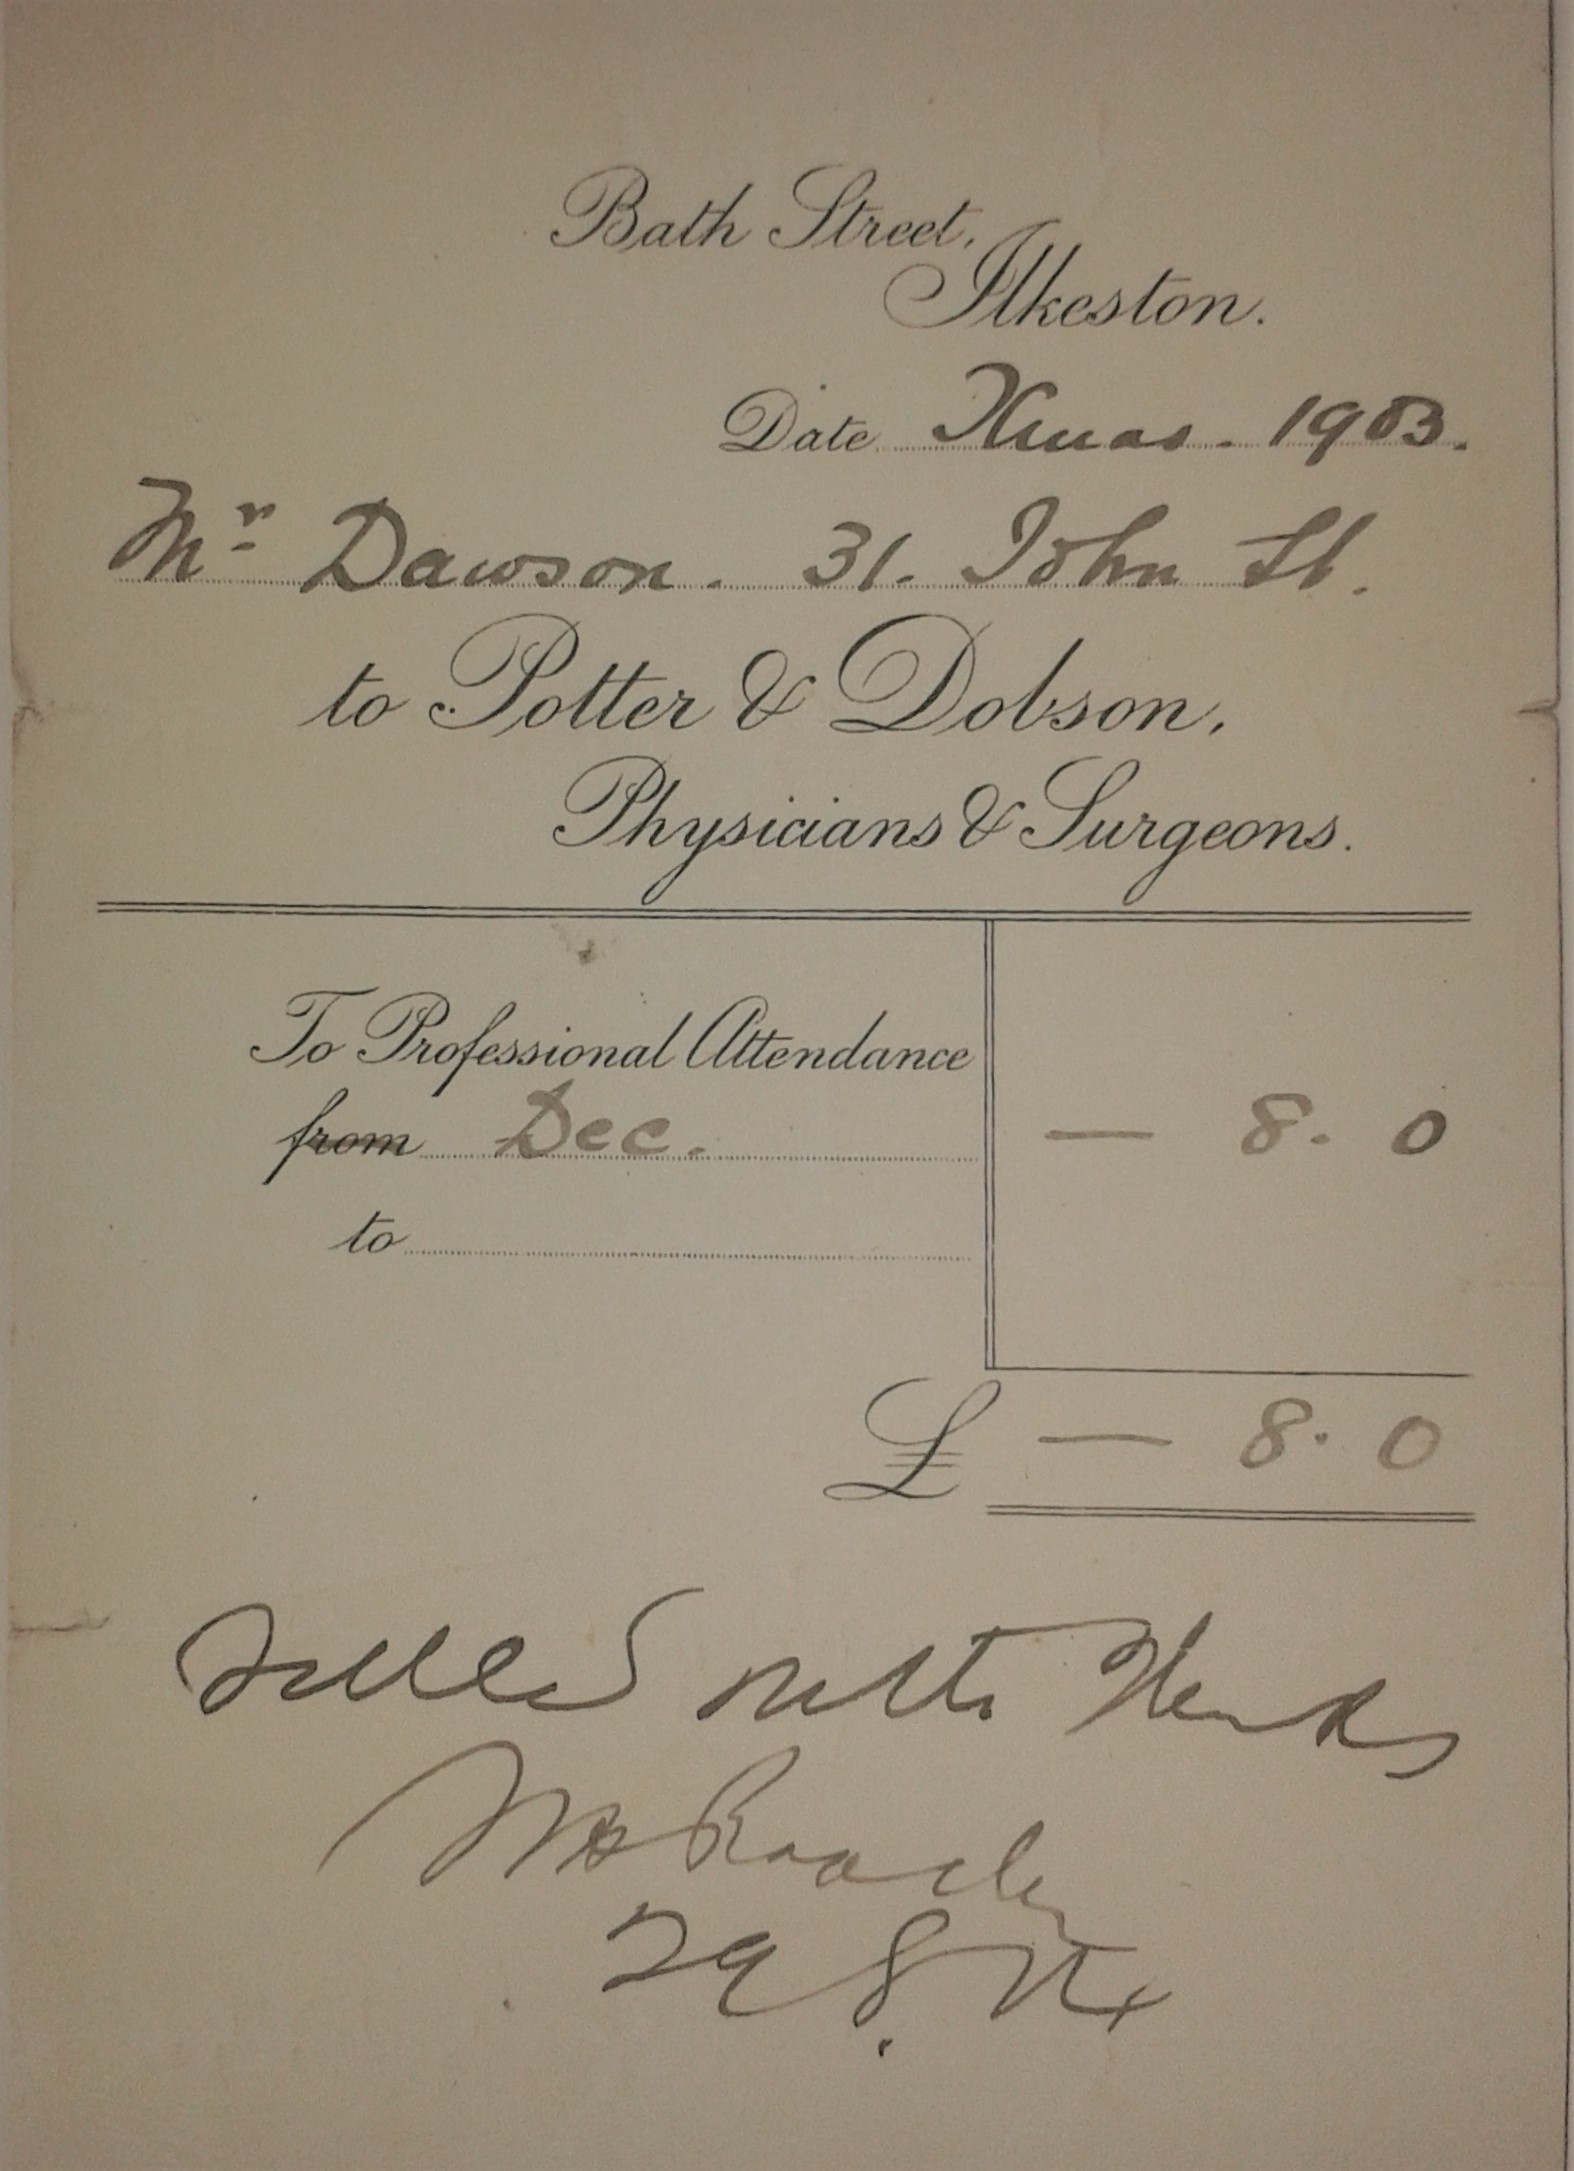 Bath Street,
Ilkeston.
Date Xmas. 1903.
Mr Dawson. 31. John St.
to Potter & Dobson,
Physicians & Surgeons.
To Professional Attendance
from Dec. — 8. 0
to
£ — 8. 0
Settled with thanks